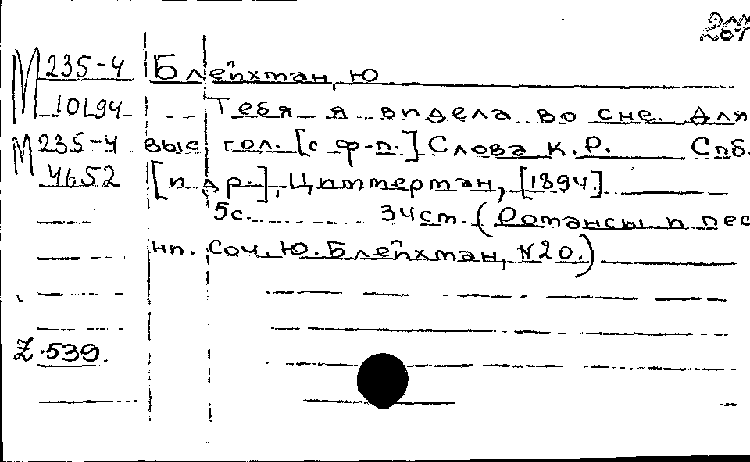 М 235-4 Блейхман, Ю
10194 Тебя я видела во сне. Для
М 235-4 выс гол. [с ф-п.] Слова К.Р. Спб.
4652 [и др.], Циммерман, [1894].
5с. 34см. (Романсы и пес
ни. Соч. Ю. Блейхман, №20.)
Z.539.